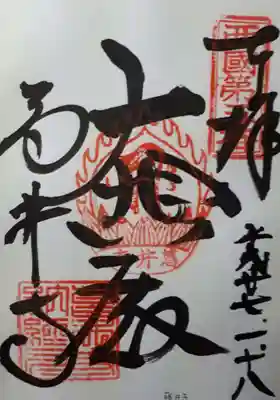 西國第五番
奉拝
平成廿七・一・十八
大悲殿
葛井寺